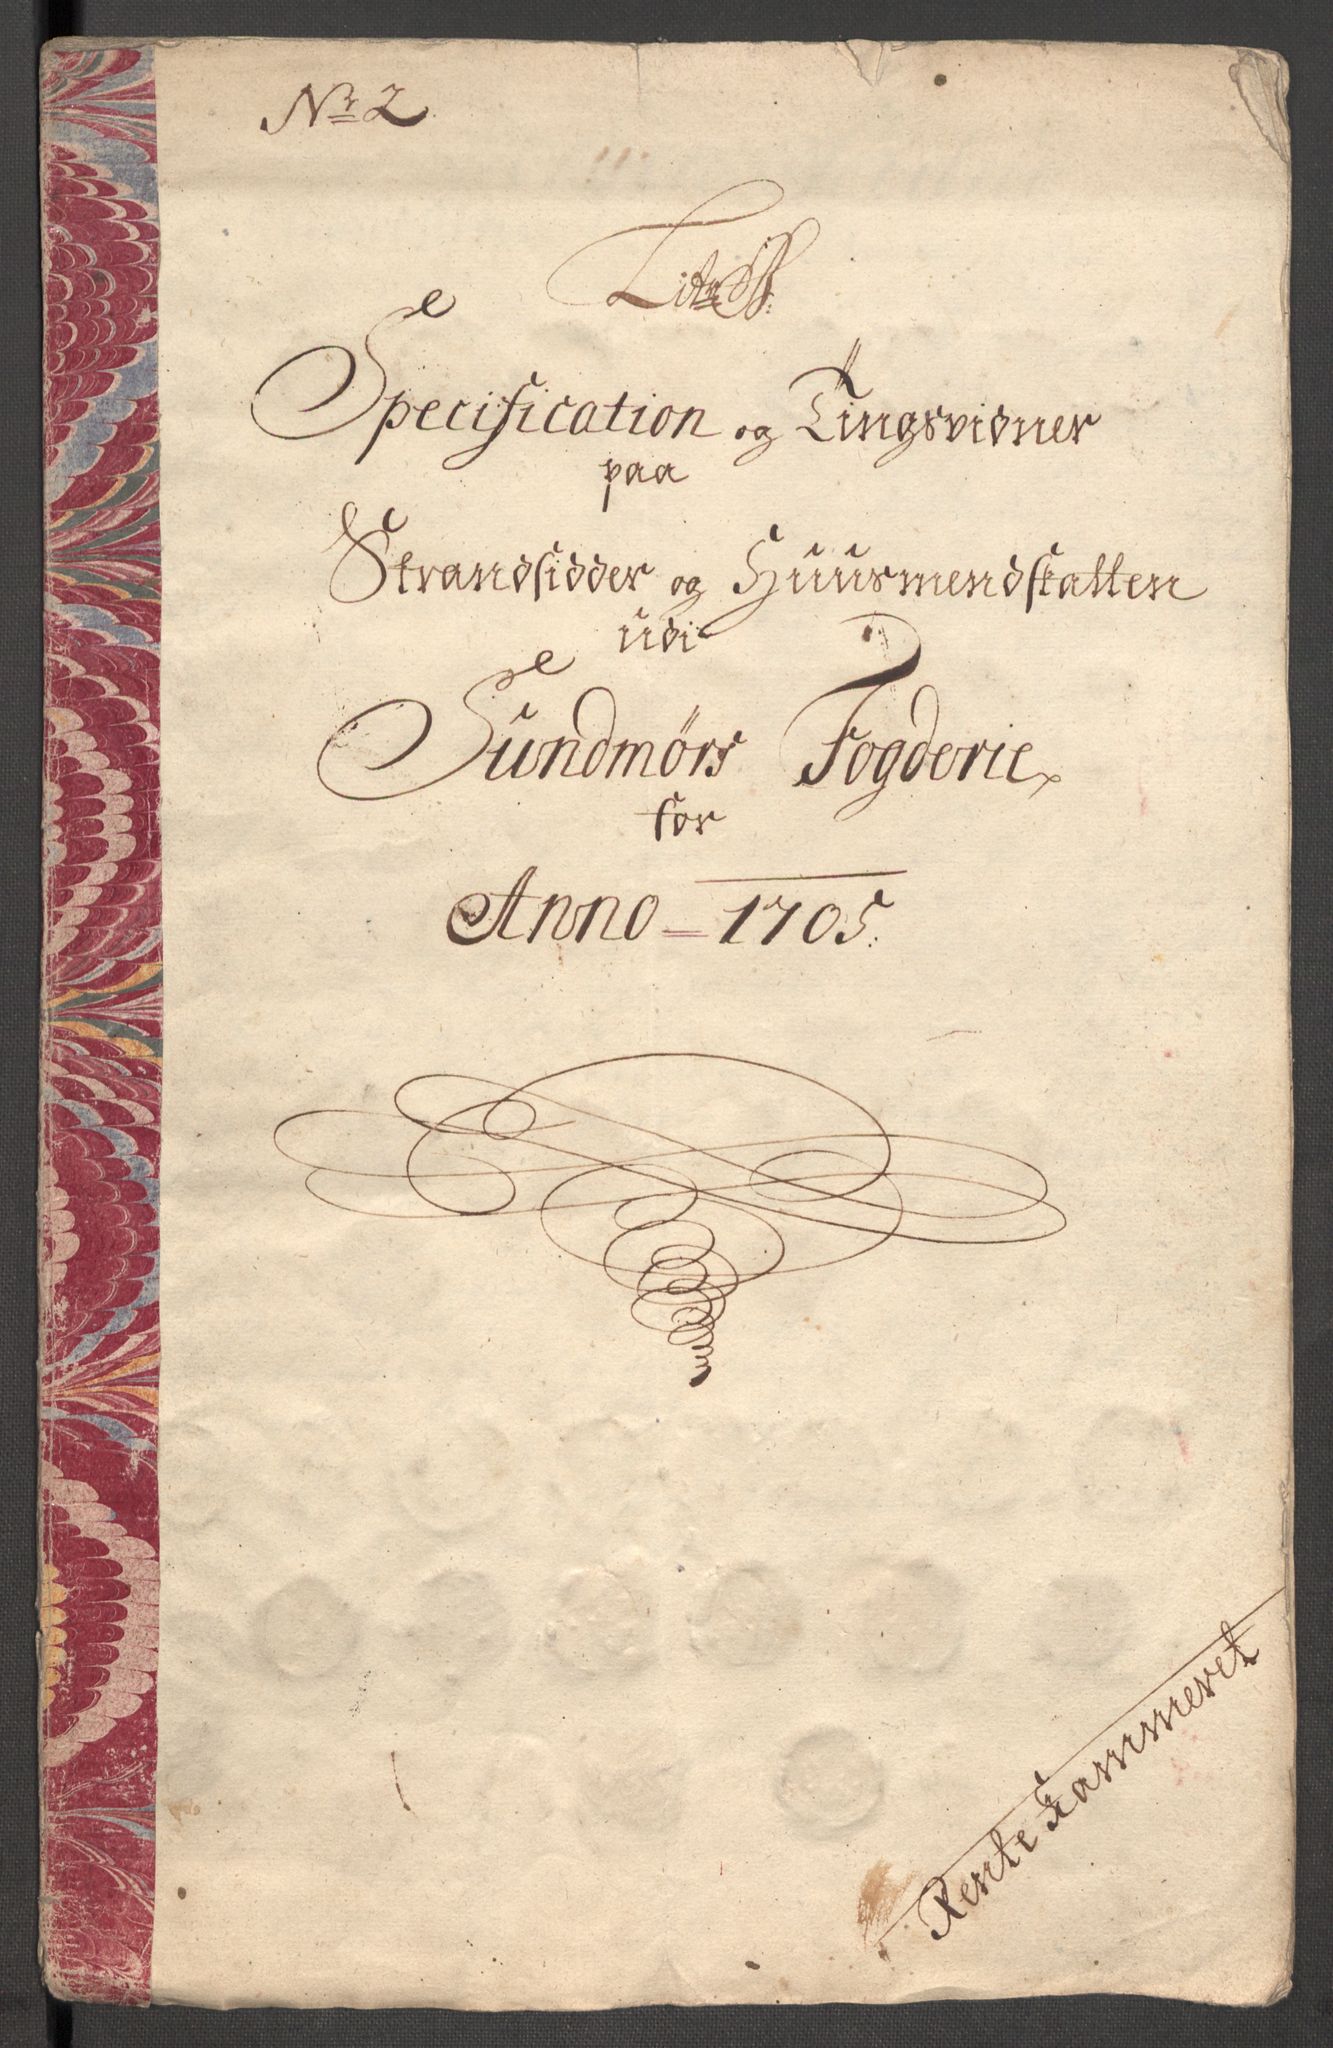 Nr 2.
Litr B:
Specification og Tingsvidner
paa
Strandsidder og Huusmendskatten
udi
Sundmørs Fogderie
for
Anno 1705.
Rente Kammeret